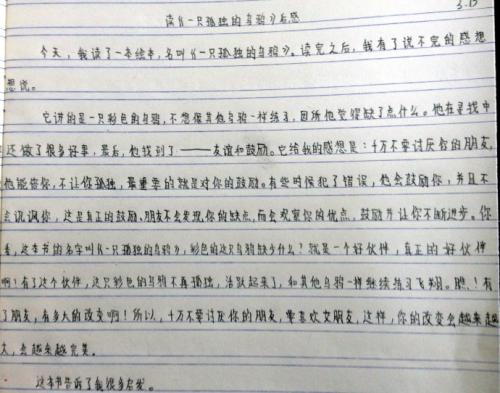 读《一只孤独的乌鸦》后感
3.15
今天，我读了一本绘本，名叫《一只孤独的乌鸦》。读完之后，我有了说不完的感想
想说。
它讲的是一只彩色的乌鸦，不想像其他乌鸦一样练习，因所他觉得缺了点什么。他在寻找中
还做了很多好事，最后，他找到了——友谊和鼓励。它给我的感想是：千万不要讨厌你的朋友，
他能陪你，不让你孤独，最重要的就是对你的鼓励。有些时候犯了错误，他会鼓励你，并且不
会讽讽你，这是真正的鼓励。朋友不会发现你的缺点，而会观察你的优点，鼓励并让你不断进步。你
看，这本书的名字叫《一只孤独的乌鸦》，彩色的这只乌鸦缺少什么？就是一个好伙伴，真正的好伙伴
啊！有了这个伙伴，这只彩色的乌鸦不再孤独，活跃起来了，和其他乌鸦一样继续练习飞翔。瞧！有
了朋友，有多大的改变啊！所以，千万不要讨厌你的朋友，要喜欢女朋友，这样，你的改变会越来越
大，会越来越完美。
这本书告诉了我很多启发。